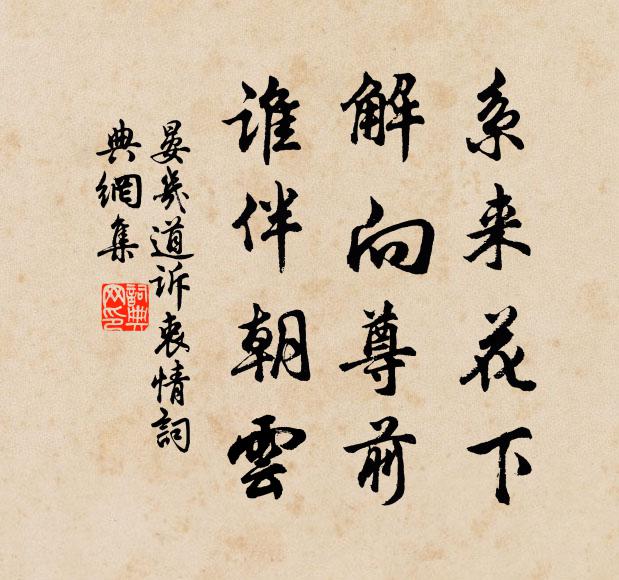 系来花下
解向尊前
谁伴朝雲
晏幾道訴衷情詞
典網集
詞典網印